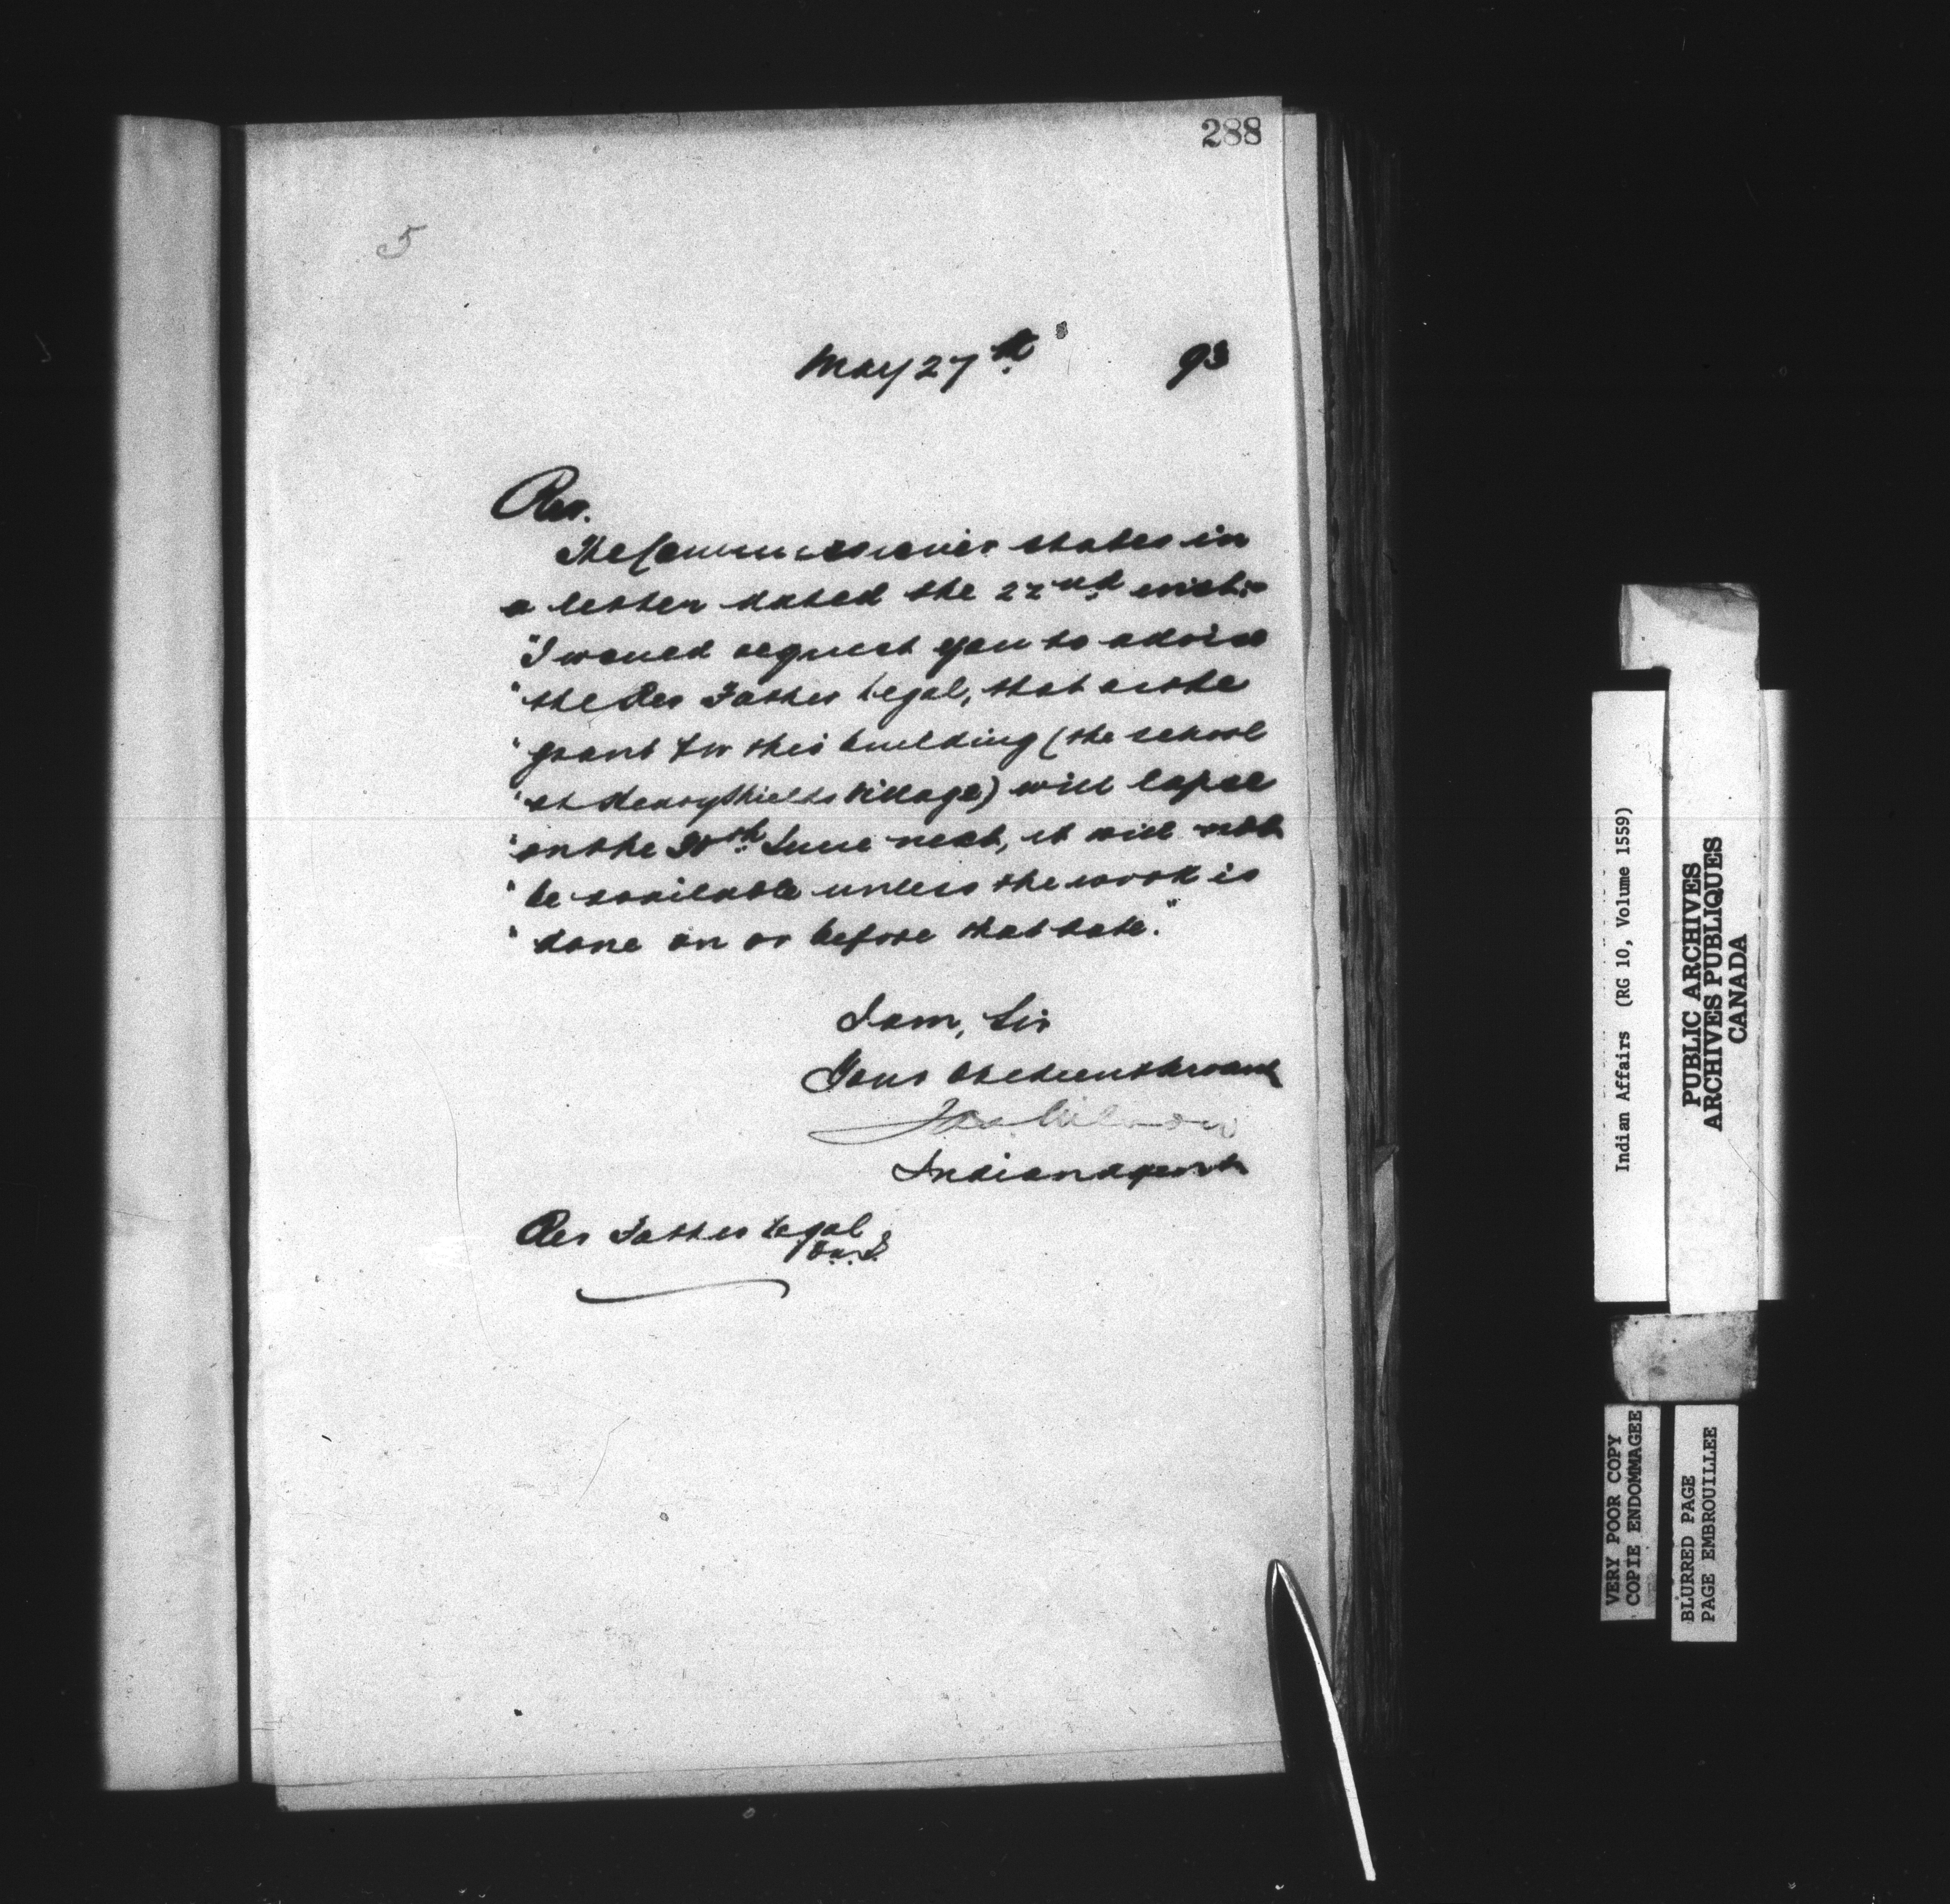 288
5
May 27th 93
Rev.
The Commissioner states in
a letter dated the 22nd inst:-
"I would request you to advise
"the Rev Father Legal, that as the
"grant for this building (the school
"at Heavy Shields Village) will lapse
"on the 30th June next, it will not
"be available unless the work is
"done on or before that date."
I am, Sir
Your Obedient Servant
Indian Agent
Rev Father Legal
Indian Affairs (RG 10, Volume 1559)
PUBLIC ARCHIVES
ARCHIVES PUBLIQUES
CANADA
VERY POOR COPY
COPIE ENDOMMAGEE
BLURRED PAGE
PAGE EMBROUILLEE